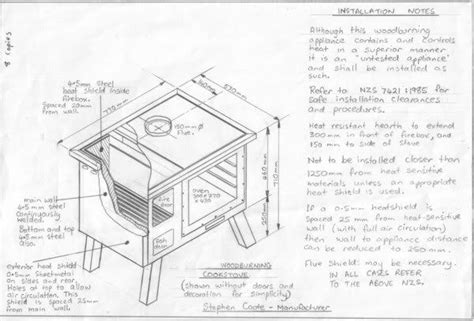 8 copies
INSTALLATION NOTES
Although this woodburning
appliance contains and controls
heat in a superior manner
it is an "untested appliance"
and shall be installed as
such.
Refer to NZS 7421:1985 for
safe installation clearances
and procedures.
Heat resistant hearth to extend
300mm in front of firebox, and
150 mm to side of stove
Not to be installed closer than
1250mm from heat sensitive
materials unless an appropriate
heat shield is used.
If a 0.5mm heatshield is
spaced 25 mm from heat-sensitive
wall (with full air circulation)
then wall to appliance distance
can be reduced to 250mm.
Flue Shield may be necessary.
IN ALL CASES REFER
TO THE ABOVE NZS.
4.5mm steel
heat shield inside
firebox.
Spaced 20mm
from wall.
770mm
660
570mm
510
150mm Ø
flue.
460mm
710mm
250mm
main wall
4.5mm steel
continuously
welded.
Bottom and top
4.5mm steel
also.
fire
door
Ash
door
Oven
exterior heat shield
0.5mm sheetmetal
on sides and rear.
Holes at top to allow
air circulation. This
shield is spaced 25mm
from main wall.
WOODBURNING
COOKSTOVE
(shown without doors and
decoration for simplicity)
Stephen Coote - Manufacturer